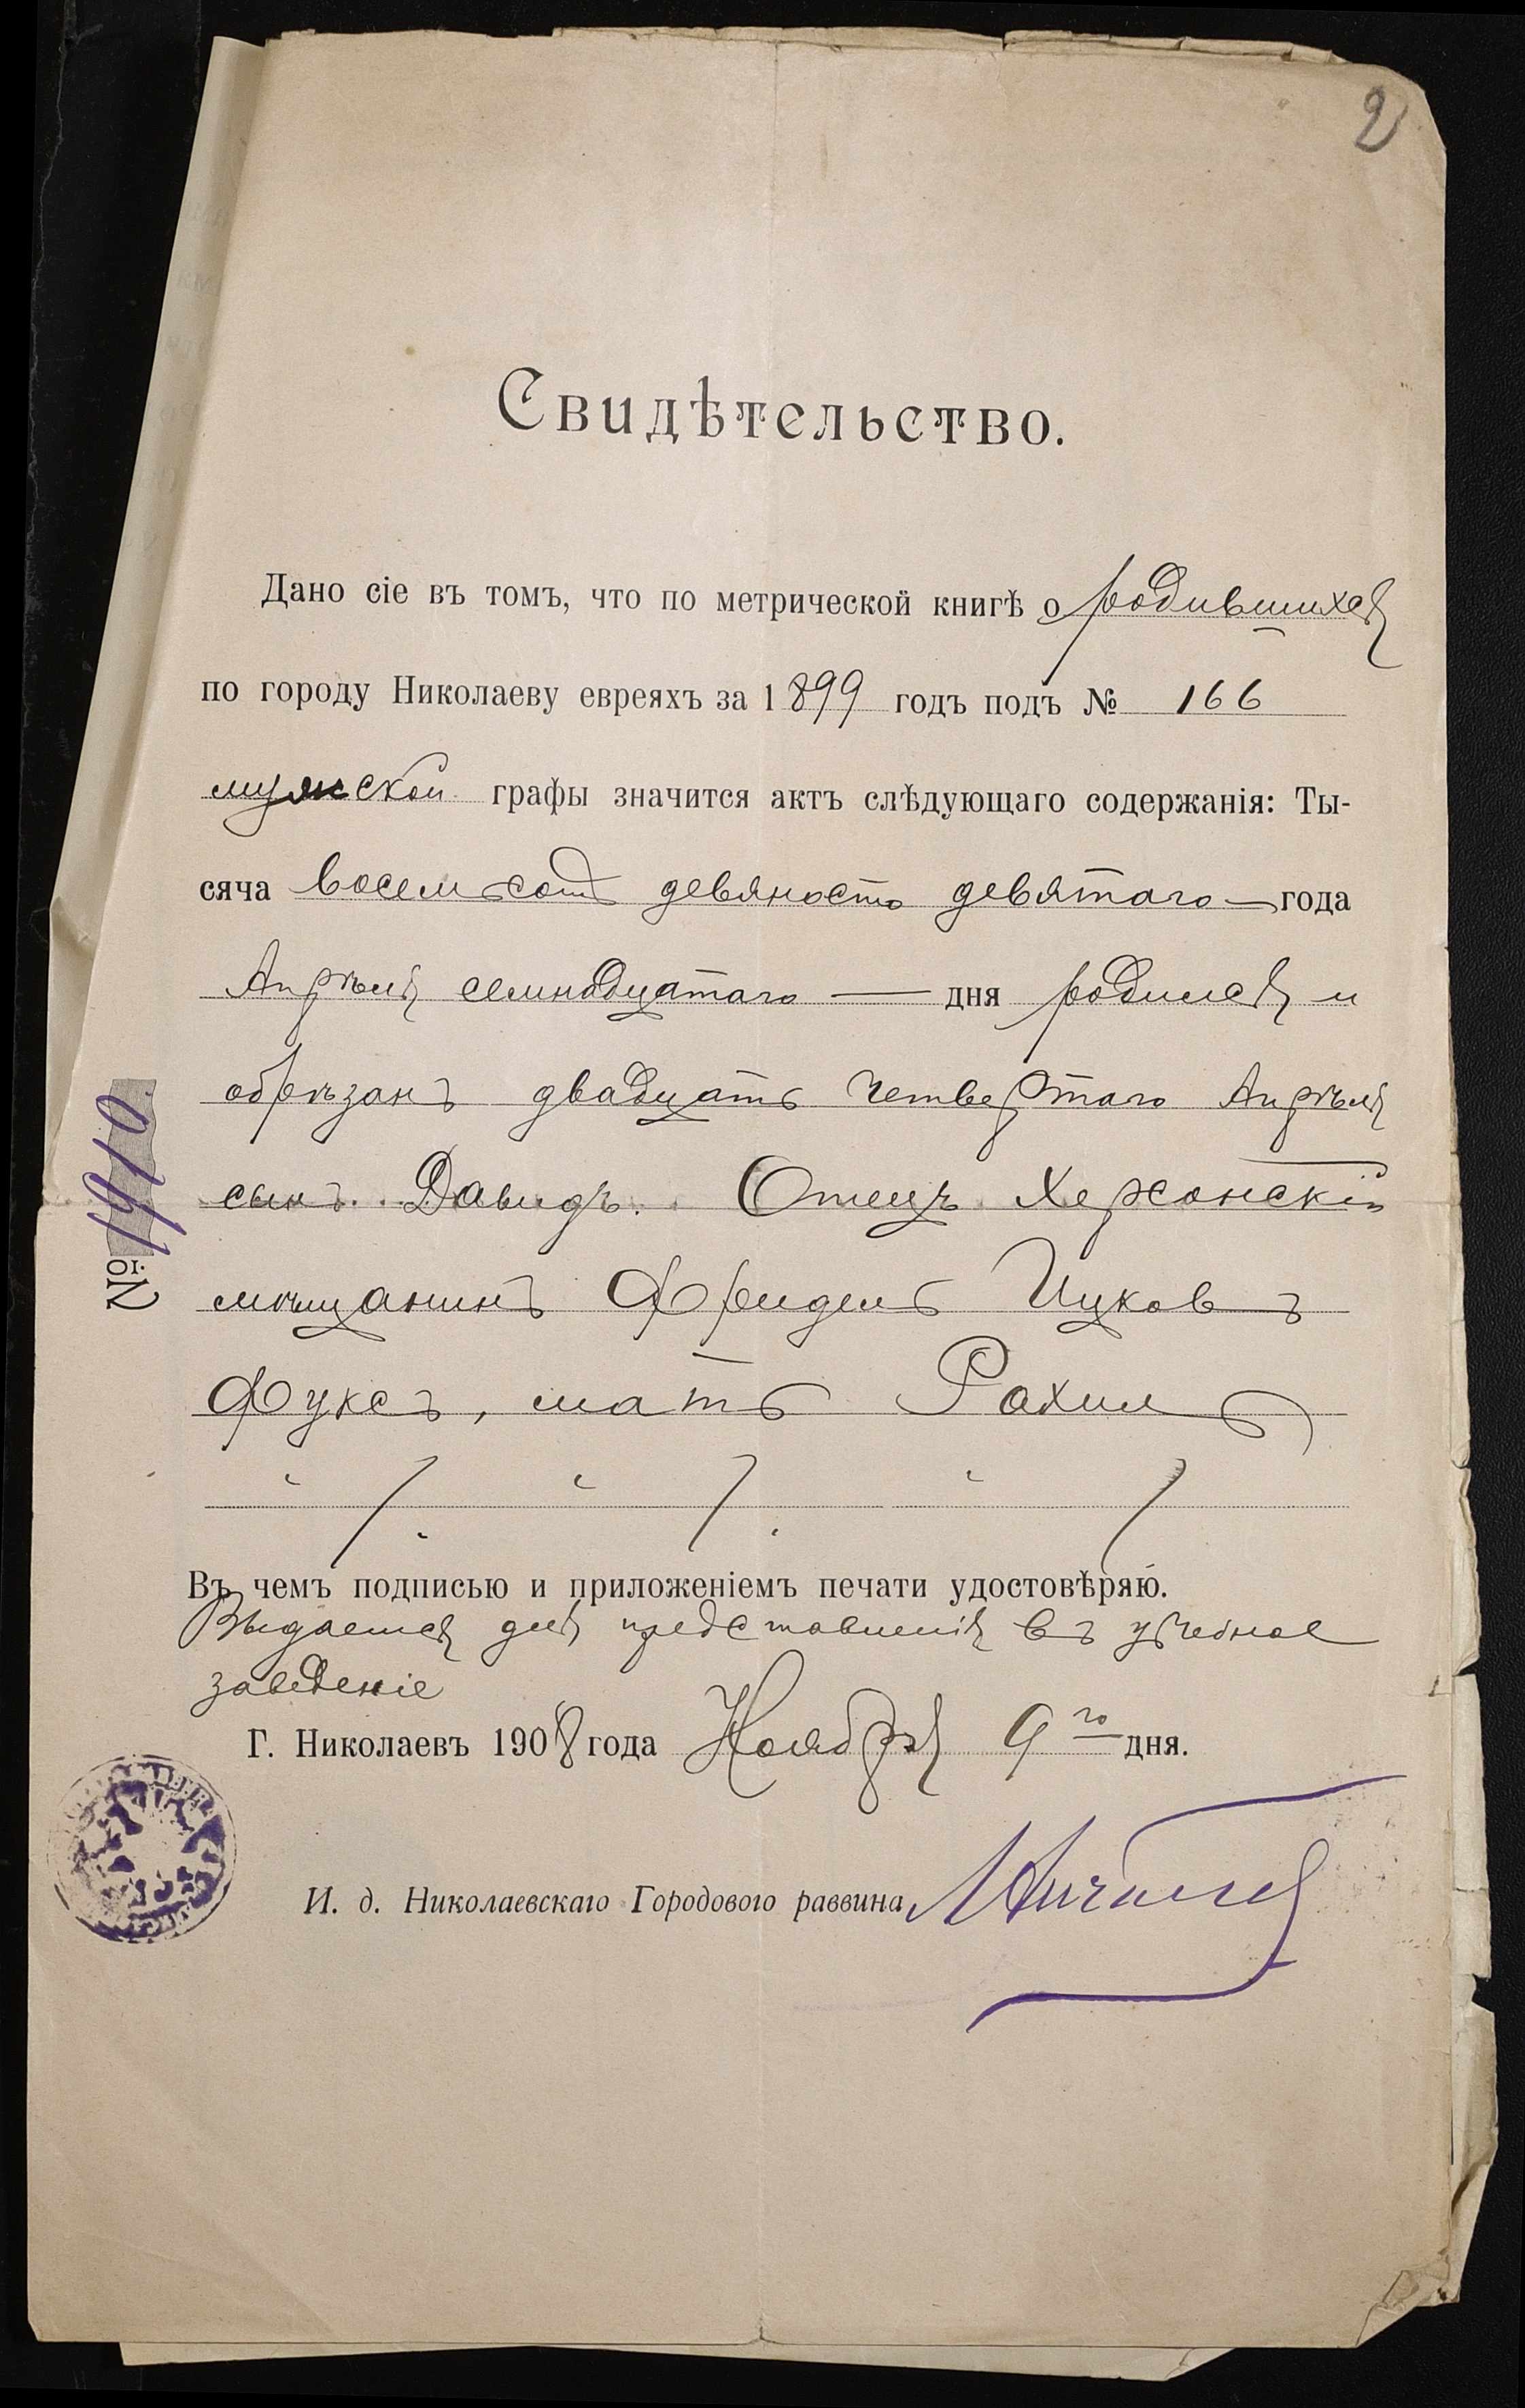 2
Свидѣтельство.
Дано сіе въ томъ, что по метрической книгѣ о родившихся
по городу Николаеву евреяхъ за 1899 годъ подъ № 166
мужской графы значится актъ слѣдующаго содержанія: Ты-
сяча восемьсотъ девяносто девятаго — года
Апрѣля семнадцатаго — дня родился и
обрѣзанъ двадцать четвертаго Апрѣля
сынъ Давидъ. Отецъ Херсонскій
мѣщанинъ Фрейдель Ицковъ
Фуксъ, мать Рахиль
Въ чемъ подписью и приложеніемъ печати удостовѣряю.
Выдается для представленія въ учебное
заведеніе
Г. Николаевъ 1908 года Ноября 9го дня.
И. д. Николаевскаго Городового раввина
№ 1410.